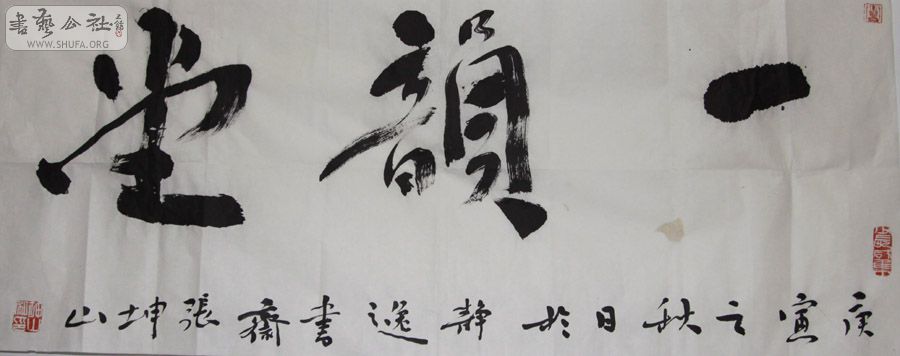 書藝公社
WWW.SHUFA.ORG
一韻堂
庚寅之秋日於靜逸書齋張坤山